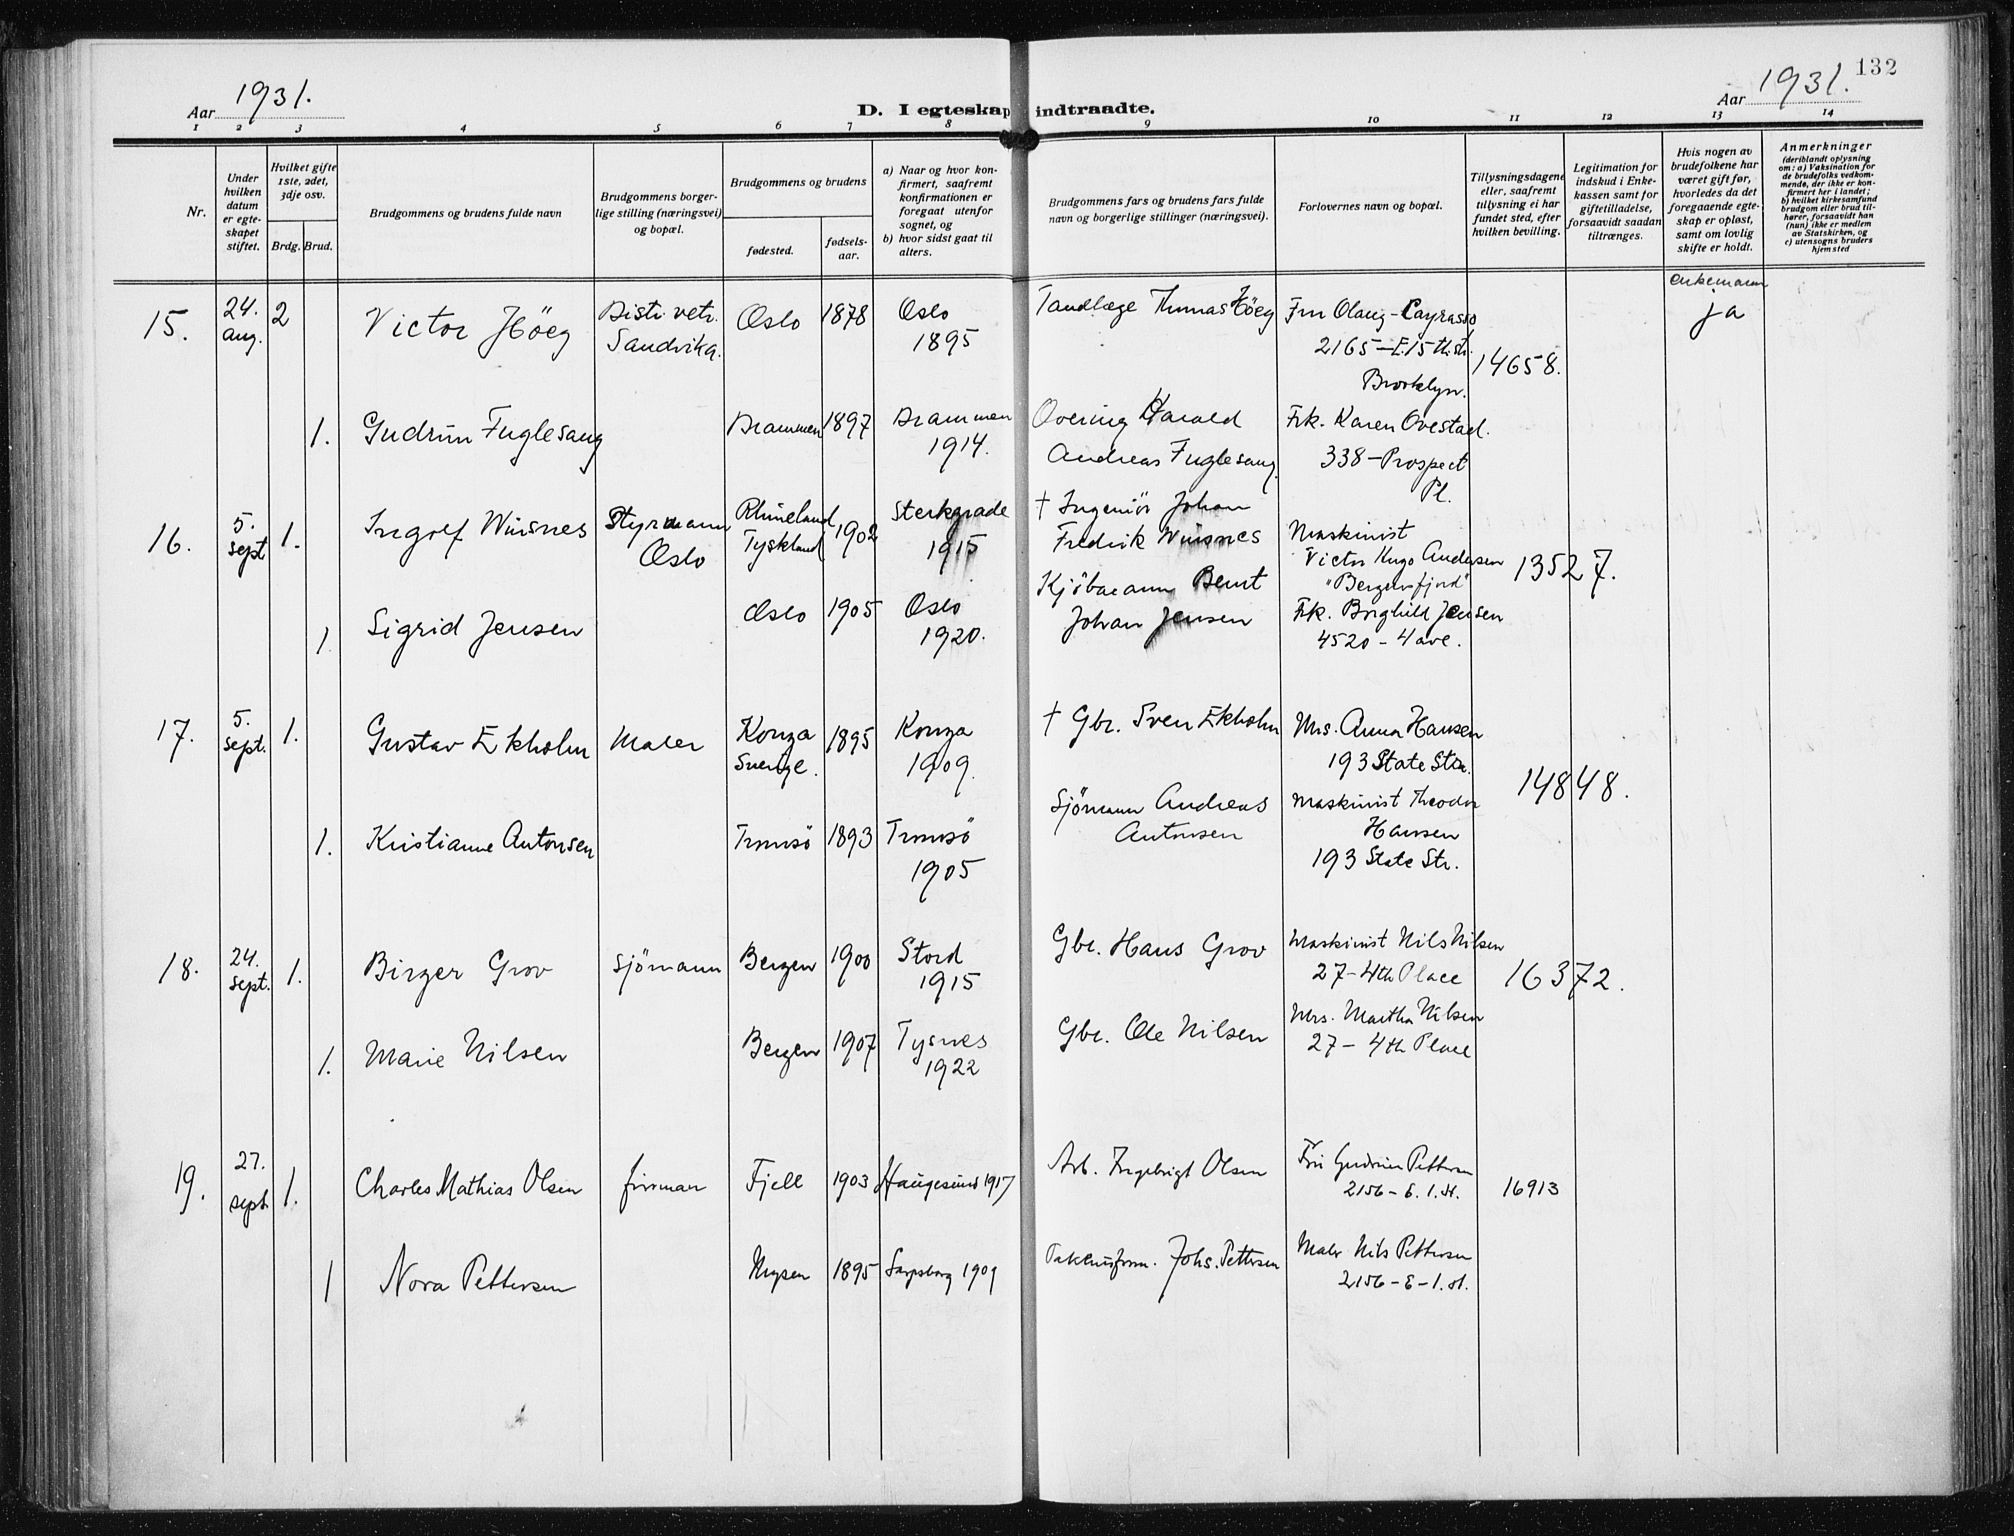 132
Aar 1931.
D. I egteskap indtraadte.
Aar 1931.
1 2 3 4 5 6 7 8 9 10 11 12 13 14
Nr.
Under hvilken datum er egteskapet stiftet.
Hvilket gifte 1ste, 2det, 3dje osv.
Brdg. Brud.
Brudgommens og brudens fulde navn
Brudgommens borgerlige stilling (næringsvei) og bopæl.
Brudgommens og brudens
fødested.
fødselsaar.
a) Naar og hvor konfirmert, saafremt konfirmationen er foregaat utenfor sognet, og
b) hvor sidst gaat til alters.
Brudgommens fars og brudens fars fulde navn og borgerlige stillinger (næringsvei).
Forlovernes navn og bopæl.
Tillysningsdagene eller, saafremt tillysning ei har fundet sted, efter hvilken bevilling.
Legitimation for indskud i Enkekassen samt for giftetilladelse, forsaavidt saadan tiltrænges.
Hvis nogen av brudefolkene har været gift før, hvorledes da det foregaaende egteskap er opløst, samt om lovlig skifte er holdt.
Anmerkninger
(deriblandt oplysning om: a) Vaksination for de brudefolks vedkommende, der ikke er konfirmert her i landet; b) hvilket kirkesamfund brudgom eller brud tilhører, forsaavidt han (hun) ikke er medlem av Statskirken, og c) utensogns bruders hjemsted
15. 24. aug. 2 Victor Höeg Distr. vetr. Sandvika. Oslo 1878 Oslo 1895 Tandlæge Thomas Höeg Fru Olaug-Cayrasso 2165-E.15th str. Brooklyn. 14658. enkemann ja
1. Gudrun Fuglesang Drammen 1897 Drammen 1914. Harald Andreas Fuglesang Frk. Karen Ovestad. 338-Prospect Pl.
16. 5. sept 1. Ingolf Wiisnes Styrmann Oslo Rhineland Tyskland 1902 Sterkrade 1915 † Ingeniör Johan Fredrik Wiisnes Maskinist Victor Hugo Andersen "Bergensfjord" 13527.
1 Sigrid Jensen Oslo 1905 Oslo 1920. Kjöbmann Bernt Johan Jensen Frk. Borghild Jensen 4520-4 ave.
17. 5. sept. 1. Gustav Ekholm Maler Konga Sverige. 1895 Konga 1909. † Gbr. Sven Ekholm Mrs. Anna Hansen 193 State Str. 14848.
1. Kristianne Antonsen Tromsö 1893 Tromsö 1905 Sjömann Andreas Antonsen Maskinist Theodor Hansen 193 State Str.
18. 24. sept. 1. Birger Grov Sjömann Bergen 1900 Stord 1915 Gbr. Hans Grov Maskinist Nils Nilsen 27-4th Place 16372.
1. Marie Nilsen Bergen 1907 Tysnes 1922 Gbr. Ole Nilsen Mrs. Martha Nilsen 27-4th Place
19. 27. sept 1. Charles Mathias Olsen firman Fjell 1903 Haugesund 1917 Arb. Ingebrigt Olsen Fru Gudrun Pettersen 2156-E.1.st. 16913
1 Nora Pettersen Mysen 1895 Sarpsborg 1909 Johs. Pettersen Maler Nils Pettersen 2156-E-1.st.